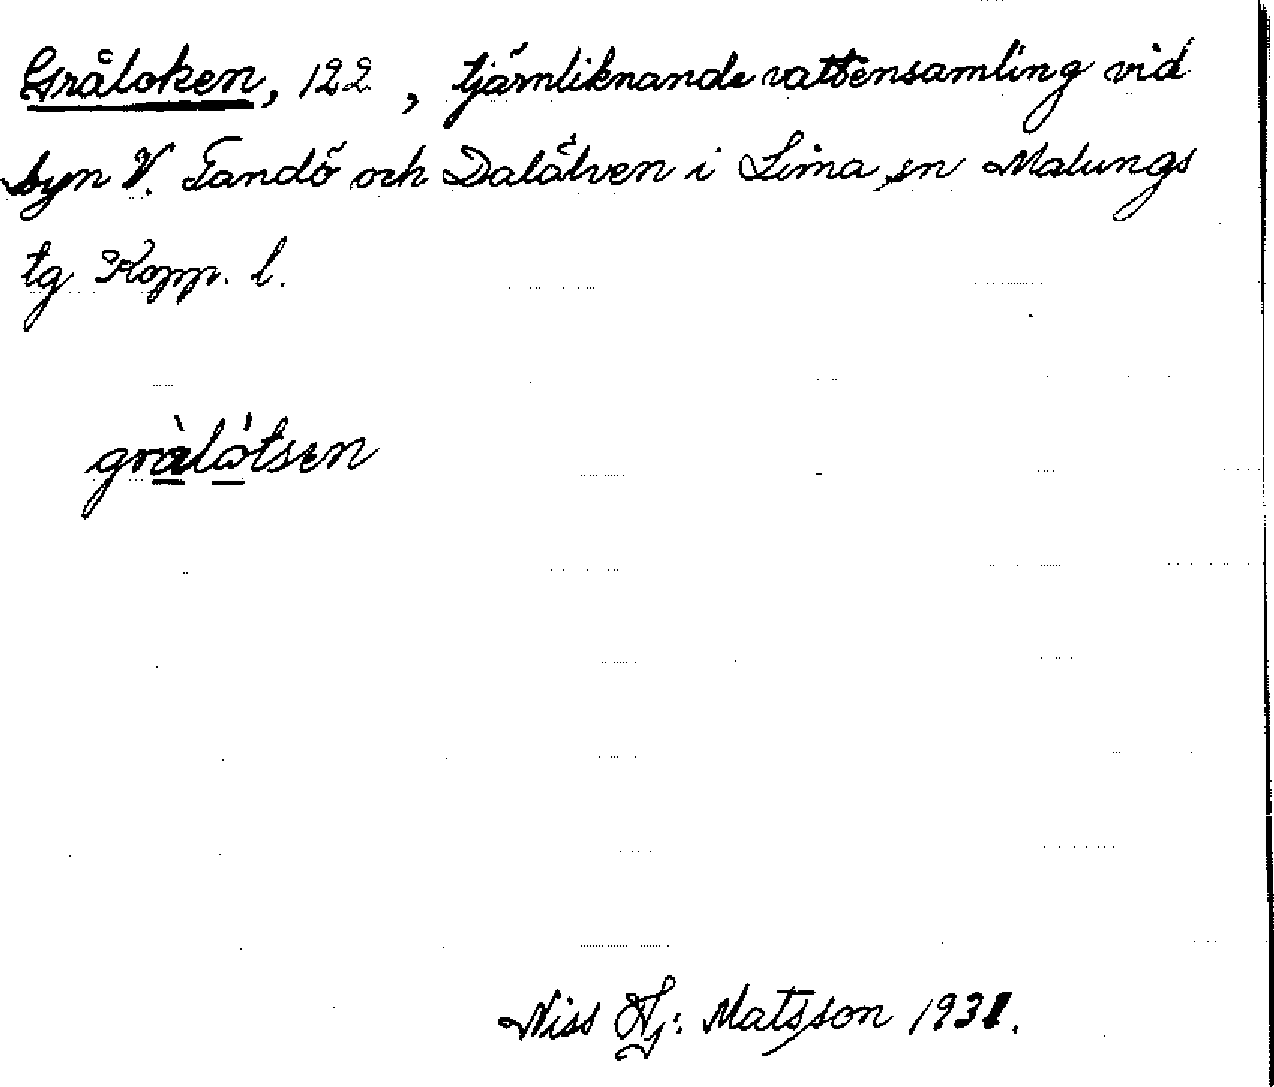 Gråloken, 122, tjärnliknande vattensamling vid
byn V. Tandö och Dalälven i Lima sn Malungs
tg Kopp. l.
gràlòtsen
Niss Hj: Matsson 1931.